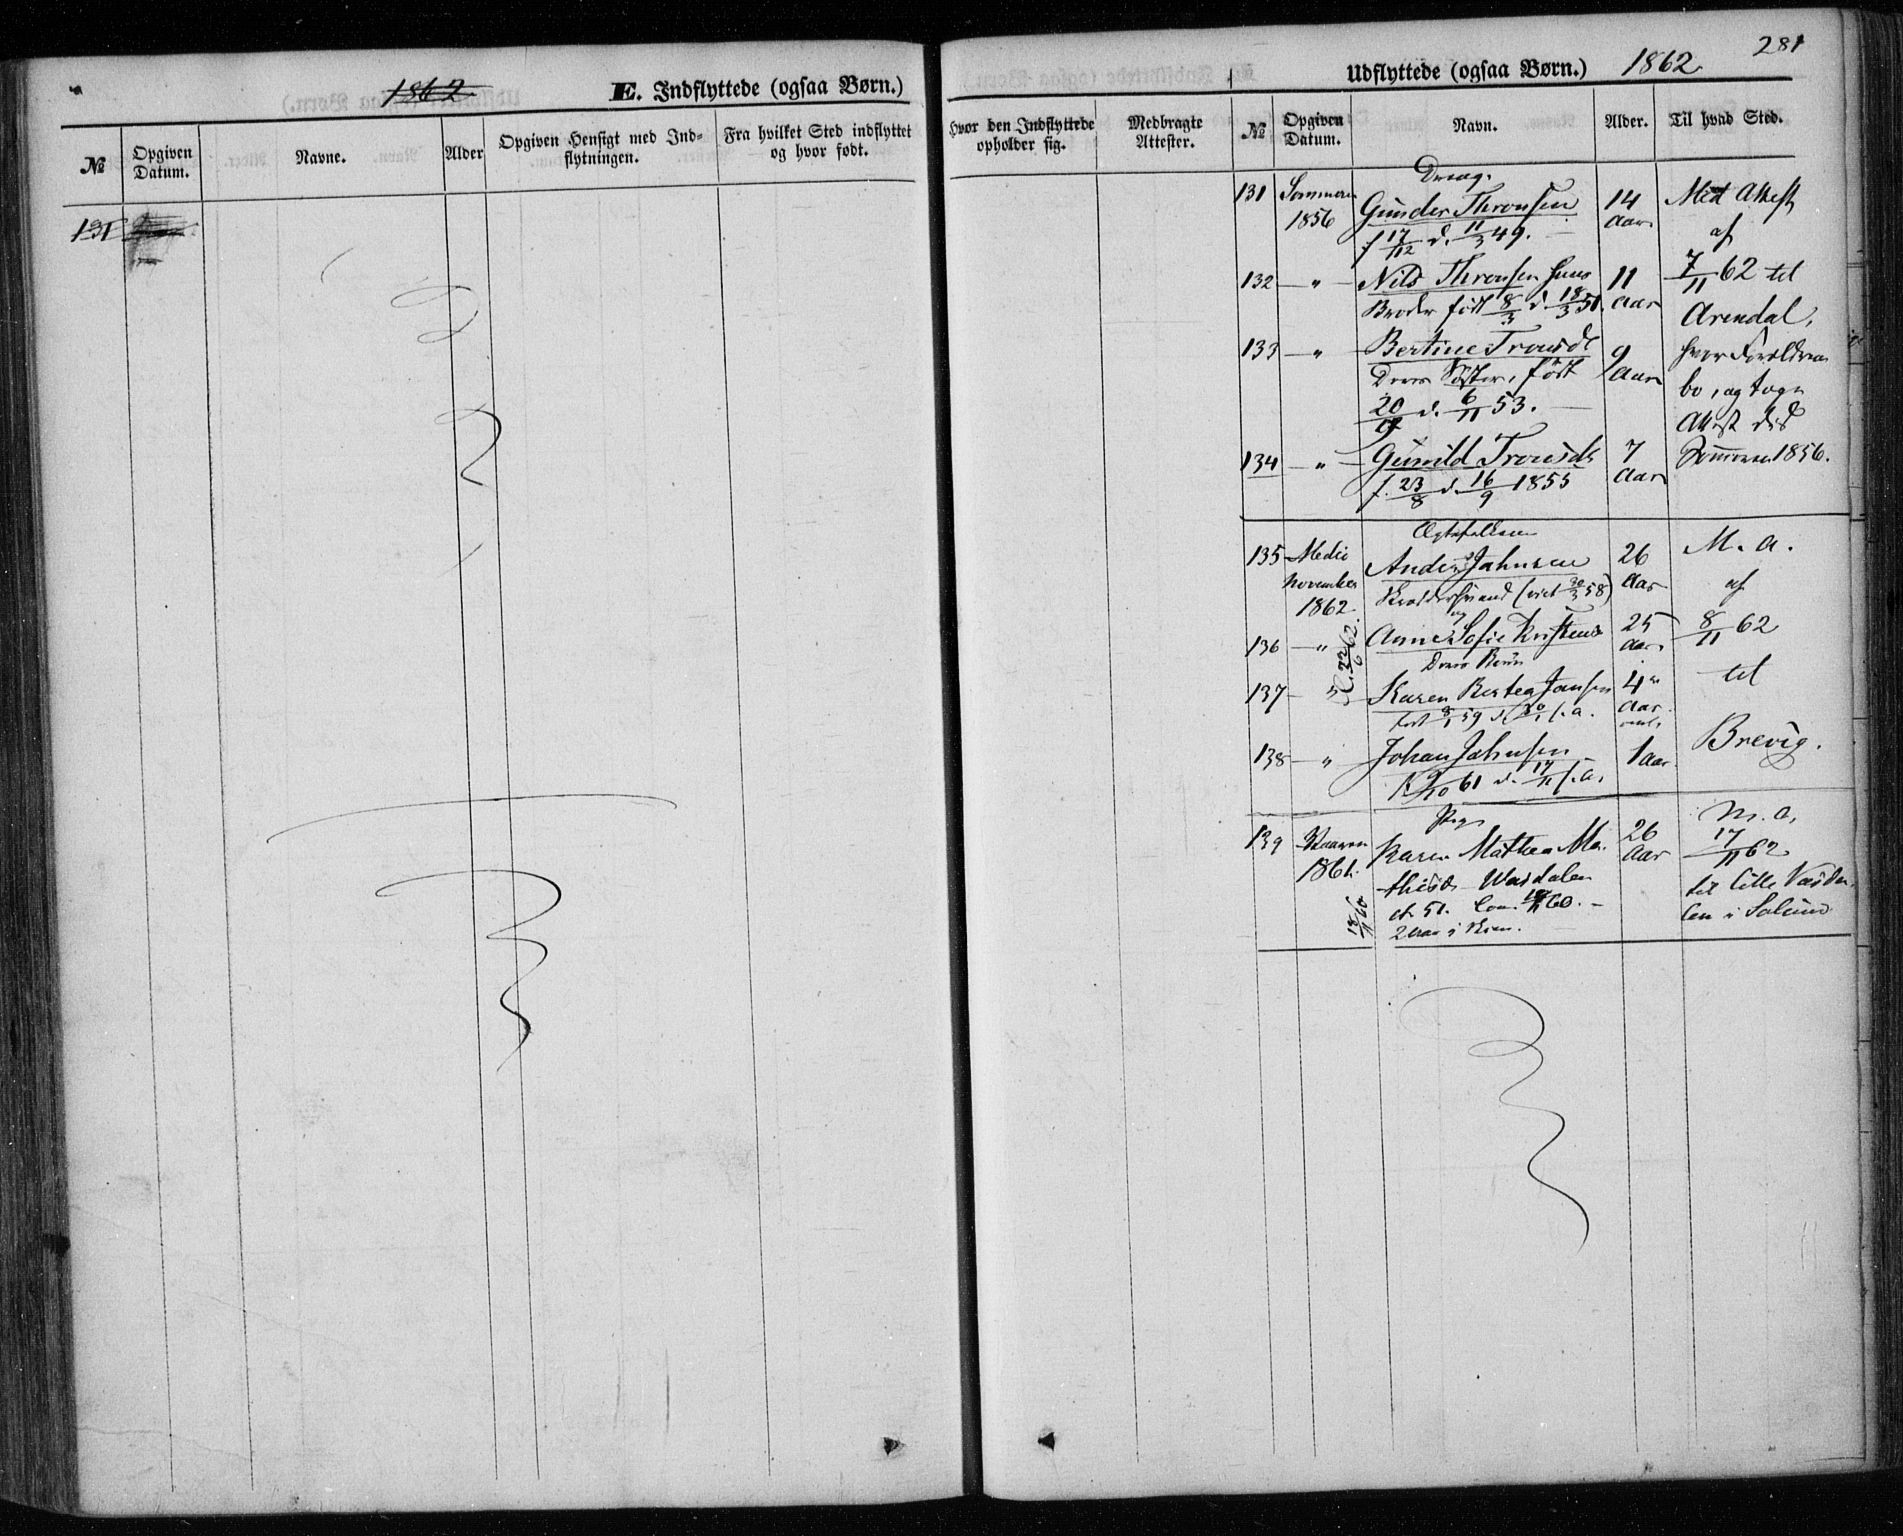 1862
E. Indflyttede (ogsaa Børn.)
№
Opgiven Datum.
Navne.
Alder
Opgiven Hensigt med Ind-
flytningen.
Fra hvilket Sted indflyttet
og hvor født.
131
281
Udflyttede (ogsaa Børn.) 1862
hvor den Indflyttede
opholder sig.
Medbragte
Attester.
№
Opgiven
Datum.
Navn.
Alder.
Til hvad Sted.
Dreng
131 Sommeren Gunder Thronsen 14 Med Attest
1856 f 17/12 d. 11/3 49. Aar af
132 " Nils Thronsen hans 11 7/11 62 til
Broder født 8/3 d. 18/3 51. Aar Arendal,
133 " Bertine Tronsdr 9 hvor Forældrene
Deres Søster, født Aar bo, og toge
20/9 d. 6/11 53. Attest did
134 " Gunild Tronsdr 7 Sommeren 1856.
f. 23/8 d. 16/9 1855 Aar
Ægtefolkene
135 Medio Anders Jahnsen 26 M. a.
November (viet 30/3 58) Aar af
1862. og
136 " Anne Sofie Kristensd 25 8/11 62
Deres Børn Aar
C. 22/6 62.
137 " Karen Bertea Jansen 4 til
født 8/1 59 d. 30/1 s. a. Aar
138 " Johan Jahnsen 1 Aar Brevig.
f. 9/10 61 d. 17/11 s. a.
Pige
139 Vaaren Karen Mathea Ma- 26 M. a.
1861. thisd. Wasdalen Aar 17/11 62
cf. 51. 60. til lille Vasda-
18/11 60 2 Aar i Skien. len i Solum